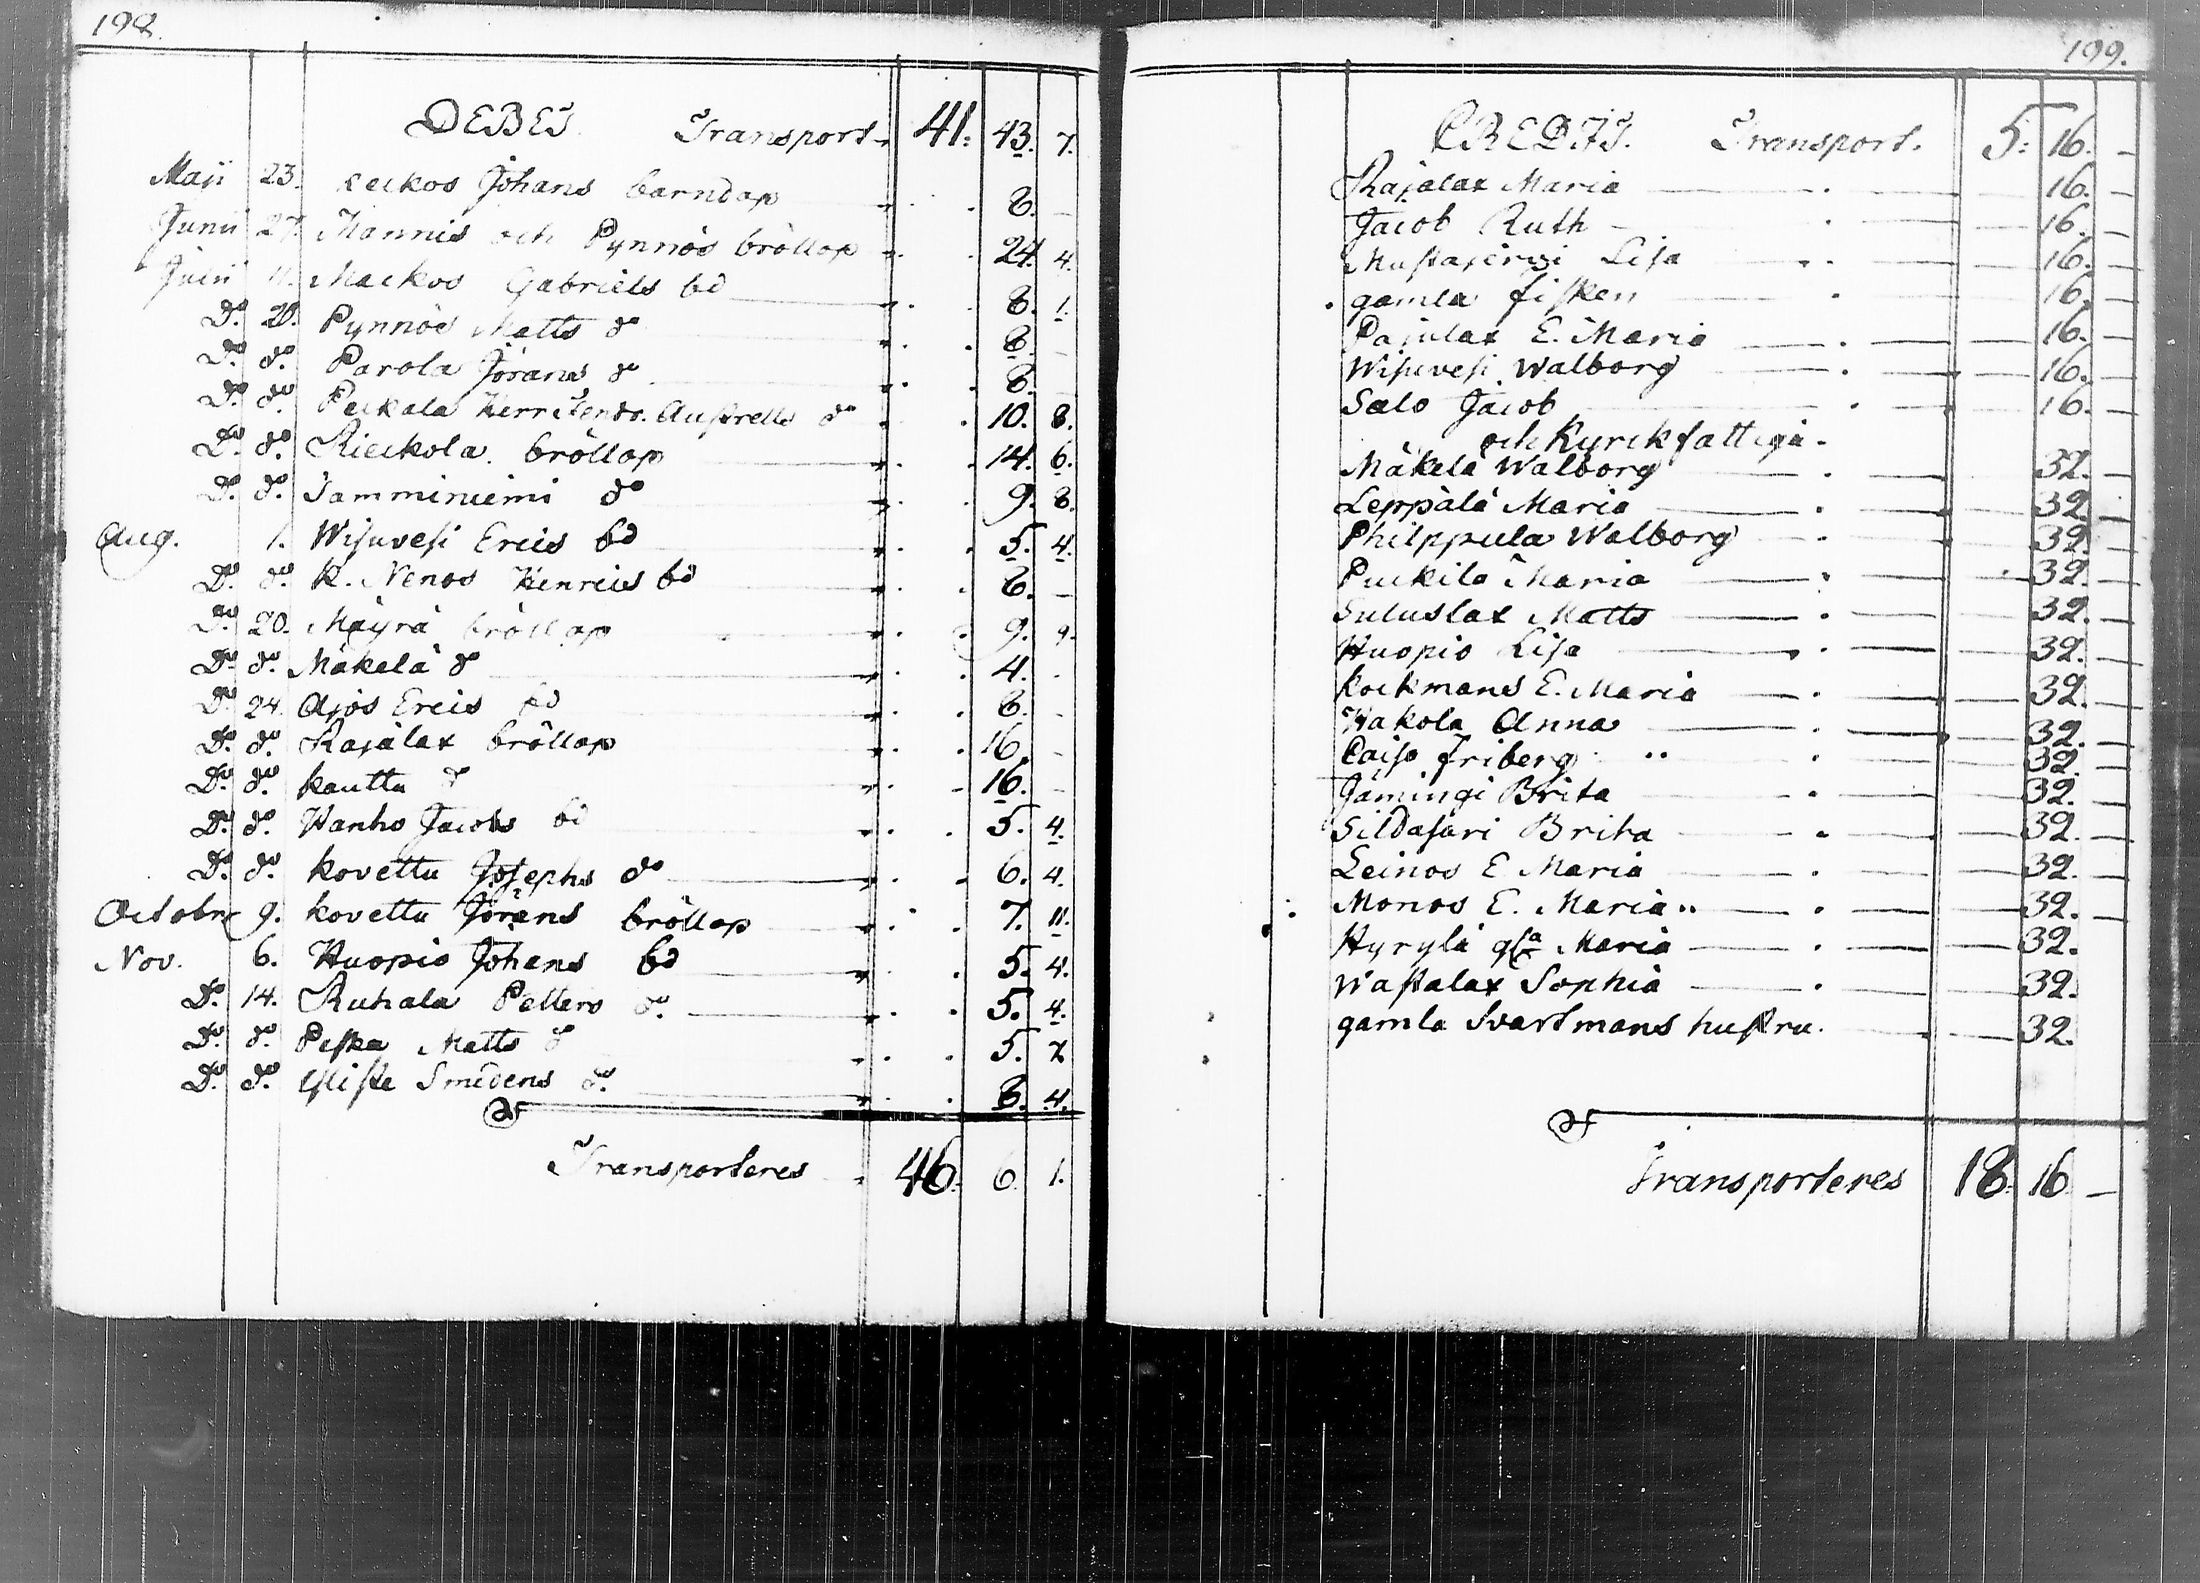 198.
DEBET. Transport. 41. 43. 7.
Maji 23. Leckos Johans barndop 8. —
Junii 27. Mannis och Pynnös bröllop 24. 4.
Julii 11. Mackos Gabriels bd 8. 1.
Do. 20. Pynnös Matts do 8. —
Do. do. Parola Jörans do 8. —
Do. do. Peckala Herr Austrells do 10. 8.
Do. do. Rieckola bröllop 14. 6.
Do. do. Tamminiemi do 9. 8.
Aug. 1. Wisuvesi Erics bd 5. 4.
Do. do. K. Nenos Henrics bd 6. —
Do. 20. Mäyrä bröllop 9. 9.
Do. do. Mäkelä do 4. -
Do. 24. Ajos Erics bd 8. -
Do. do. Rajalax bröllop 16. -
Do. do. Kauttu do 16. -
Do. do. Wanho Jacobs bd 5. 4.
Do. do. Kovettu Josephs do 6. 4.
Octobr. 9. Kovettu Jörans bröllop 7. 11.
Nov. 6. Huopio Johans bd 5. 4.
Do. 14. Ruhala Petters do. 5. 4.
Do. do. Peska Matts do 5. 7.
Do. do. Smedens do. 8. 4.
Transporteres 46. 6. 1.
199.
CREDIT. Transport. 5. 16. —
Rajalax Maria 16. —
Jacob Ruth 16. —
Mustajerwi Lisa 16. —
gamla fisken 16. —
Pajulax E. Maria 16. —
Wisuvesi Walborg 16. —
Salo Jacob 16. —
och Kyrckfattiga.
Mäkelä Walborg 32. —
Leppälä Maria 32. —
Philppula Walborg 32. —
Puckila Maria 32. —
Suluslax Matts 32. —
Huopio Lisa 32. —
Kockmans E. Maria 32. —
Wakola Anna 32. —
Caisa Friberg 32. —
Jämingi Brita 32. —
Sildasari Brita 32. —
Leinos E Maria 32. —
Monos E. Maria 32. —
Hyrylä gla Maria 32.
Wastalax Sophia 32.
gamla Svartmans hustru. 32.
Transporteres 18. 16 —